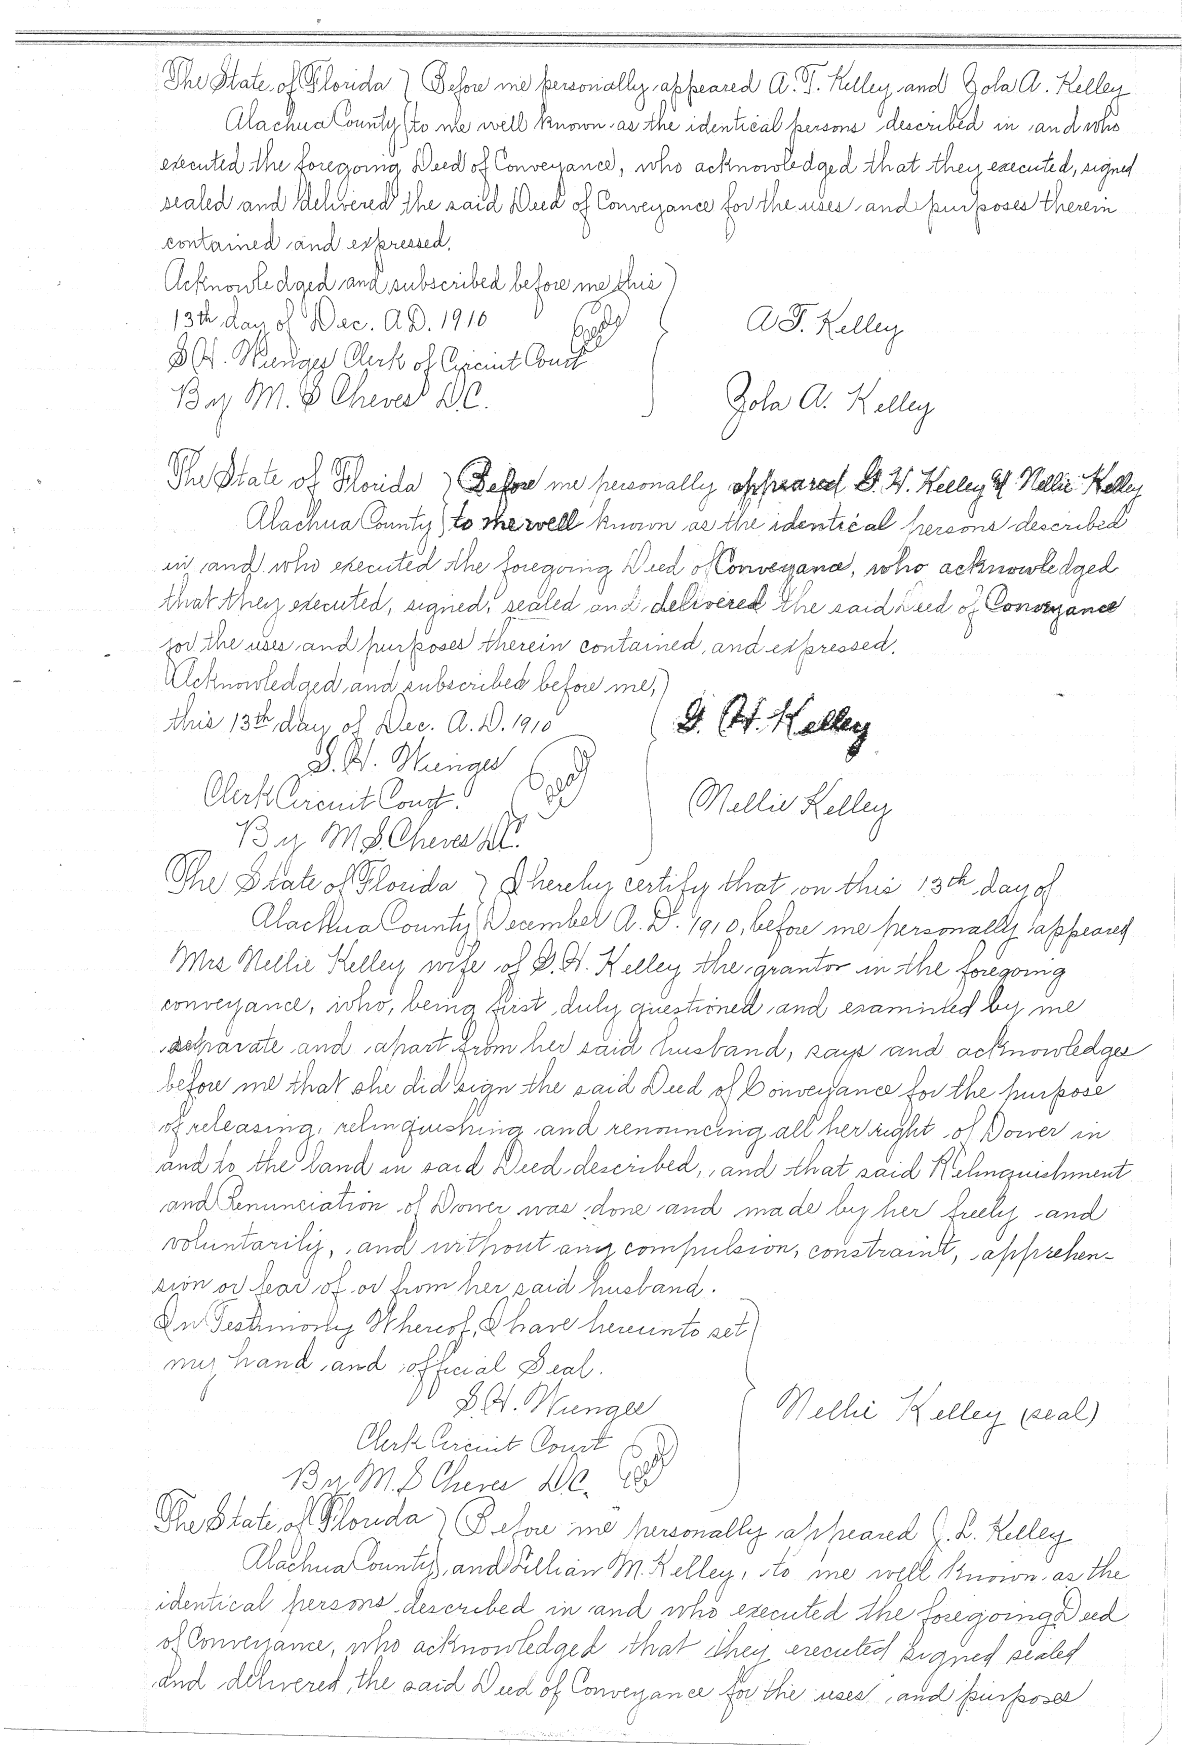 The State of Florida } Before me personally appeared A. T. Kelley and Zola A. Kelley
Alachua County } to me well known as the identical persons described in and who
executed the foregoing Deed of Conveyance, who acknowledged that they executed, signed
sealed and delivered the said Deed of Conveyance for the uses and purposes therein
contained and expressed.
Acknowledged and subscribed before me this }
13th day of Dec. A.D. 1910 (Seal) A T. Kelley
S H. Wienges Clerk of Circuit Court
By M. S Cheves D.C. Zola A. Kelley
The State of Florida } Before me personally appeared G. H. Kelley & Nellie Kelley
Alachua County } to me well known as the identical persons described
in and who executed the foregoing Deed of Conveyance, who acknowledged
that they executed, signed, sealed and delivered the said Deed of Conveyance
for the uses and purposes therein contained and expressed.
Acknowledged and subscribed before me, }
this 13th day of Dec. A. D. 1910 G. H. Kelley
S. H. Wienges
Clerk Circuit Court. (Seal) Nellie Kelley
By M S. Cheves D.C.
The State of Florida } I hereby certify that on this 13th day of
Alachua County } December A. D. 1910, before me personally appeared
Mrs Nellie Kelley wife of G. H. Kelley the grantor in the foregoing
conveyance, who, being first duly questioned and examined by me
separate and apart from her said husband, says and acknowledges
before me that she did sign the said Deed of Conveyance for the purpose
of releasing, relinquishing and renouncing all her right of Dower in
and to the land in said Deed described, and that said Relinquishment
and Renunciation of Dower was done and made by her freely and
voluntarily, and without any compulsion, constraint, apprehen-
sion or fear of or from her said husband.
In Testimony Whereof, I have hereunto set }
my hand and official Seal.
S. H. Wienges Nellie Kelley (seal)
Clerk Circuit Court (Seal)
By M. S Cheves D.C.
The State of Florida } Before me personally appeared J. L. Kelley
Alachua County } and Lillian M. Kelley, to me well known as the
identical persons described in and who executed the foregoing Deed
of Conveyance, who acknowledged that they executed signed sealed
and delivered the said Deed of Conveyance for the uses and purposes